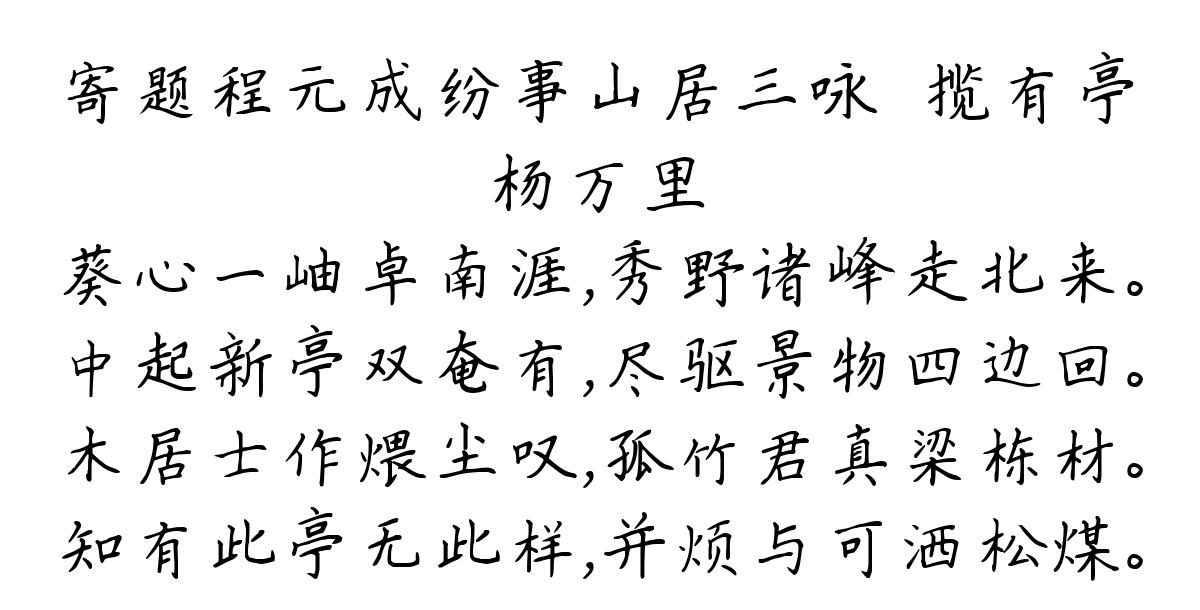 寄题程元成纷事山居三咏 揽有亭
杨万里
葵心一岫卓南涯,秀野诸峰走北来。
中起新亭双奄有,尽驱景物四边回。
木居士作煨尘叹,孤竹君真梁栋材。
知有此亭无此样,并烦与可洒松煤。